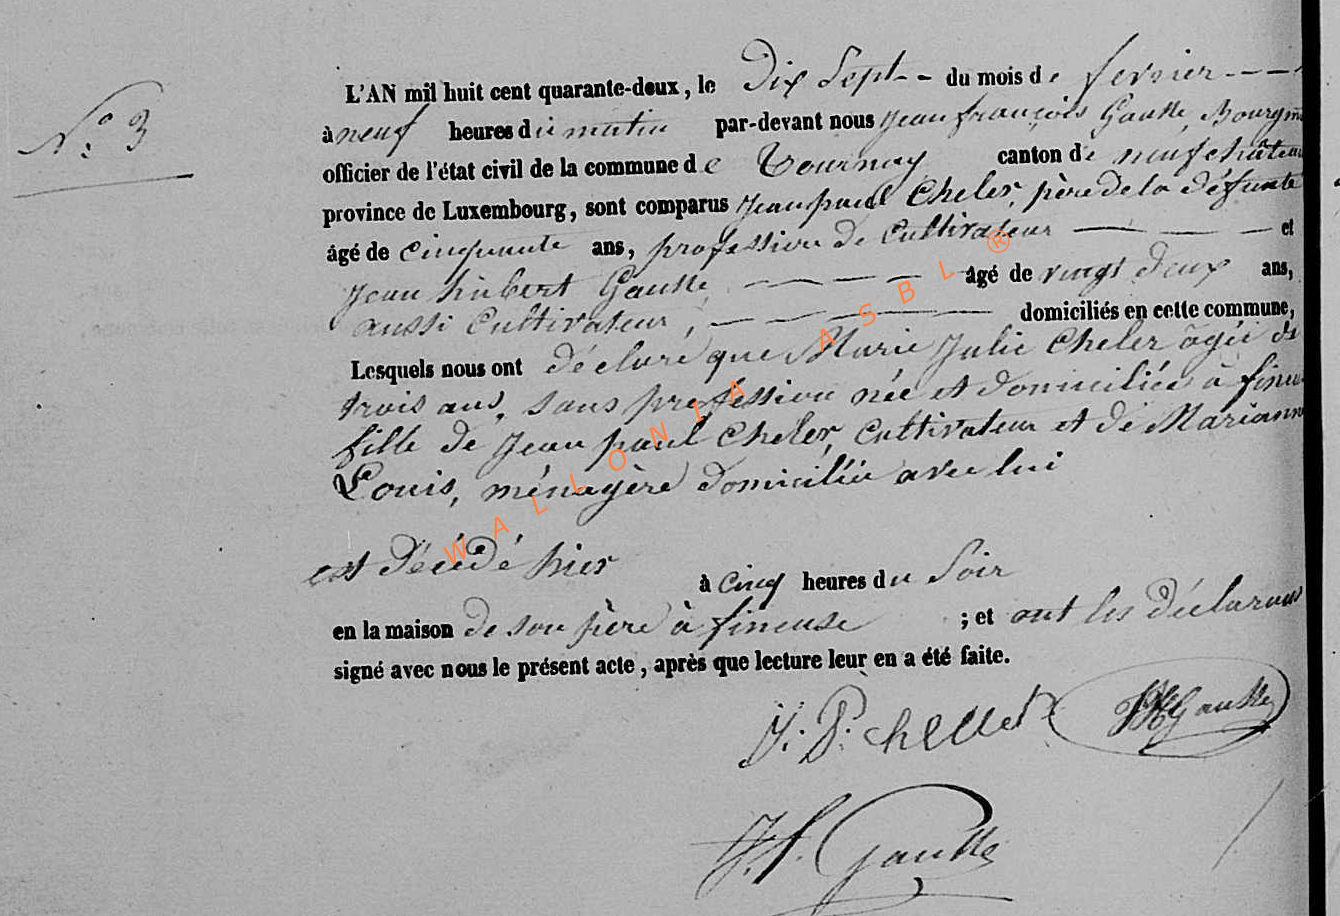 N.° 3
L'AN mil huit cent quarante-deux, le Dix Sept -- du mois de fevrier ---
à neuf heures du matin par-devant nous Jean françois Gausse, Bourgm
officier de l'état civil de la commune de Tournay canton de neufchâteau
province de Luxembourg, sont comparus Jean paul Cheler, père de la défunte
âgé de cinquante ans, profession de Cultivateur — — — et
Jean hubert Gausse, — — — âgé de vingt deux ans,
aussi Cultivateur, — — — domiciliés en cette commune,
Lesquels nous ont déclaré que Marie Julie Cheler âgée de
trois ans, sans profession née et domiciliée à fineu
fille de Jean paul Cheler, Cultivateur et de Mariann
Louis, ménagère domiciliée avec lui
est décédé hier à cinq heures du Soir
en la maison de son père à fineuse ; et ont les déclarans
signé avec nous le présent acte, après que lecture leur en a été faite.
J. P. cheller JH Gausse
J. f. Gausse
WALLONIA ASBL ®